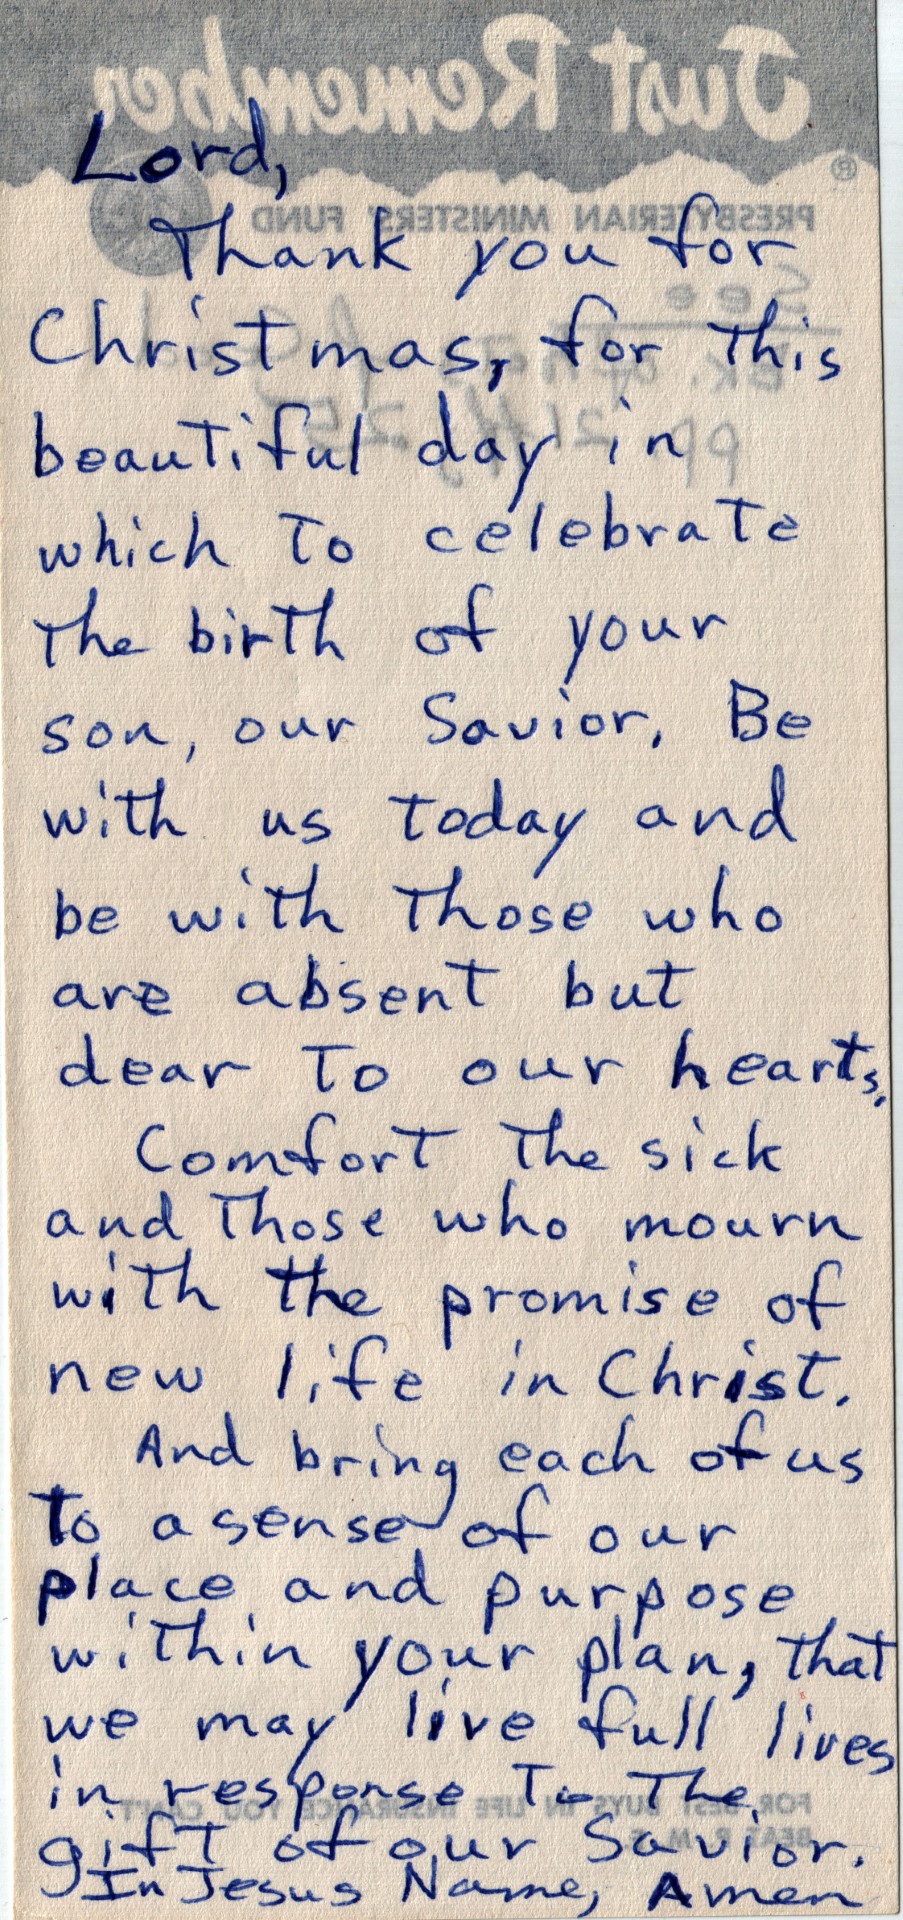 Just Remember
®
Lord,
PRESBYTERIAN MINISTERS' FUND
Thank you for
See
Christmas, for this
beautiful day in
which to celebrate
the birth of your
son, our Savior. Be
with us today and
be with those who
are absent but
dear to our hearts.
Comfort the sick
and those who mourn
with the promise of
new life in Christ.
And bring each of us
to a sense of our
place and purpose
within your plan, that
we may live full lives
in response to the
FOR BEST BUYS IN LIFE INSURANCE YOU CAN'T
gift of our Savior.
BEAT P. M. F.
In Jesus Name, Amen